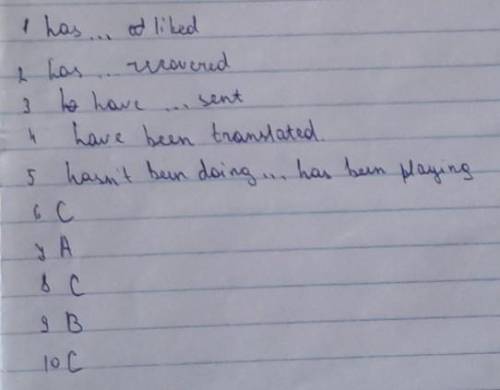 1 has ... liked
2 has ... recovered
3 have ... sent
4 have been translated.
5 hasn't been doing ... has been playing
6 C
7 A
8 C
9 B
10 C